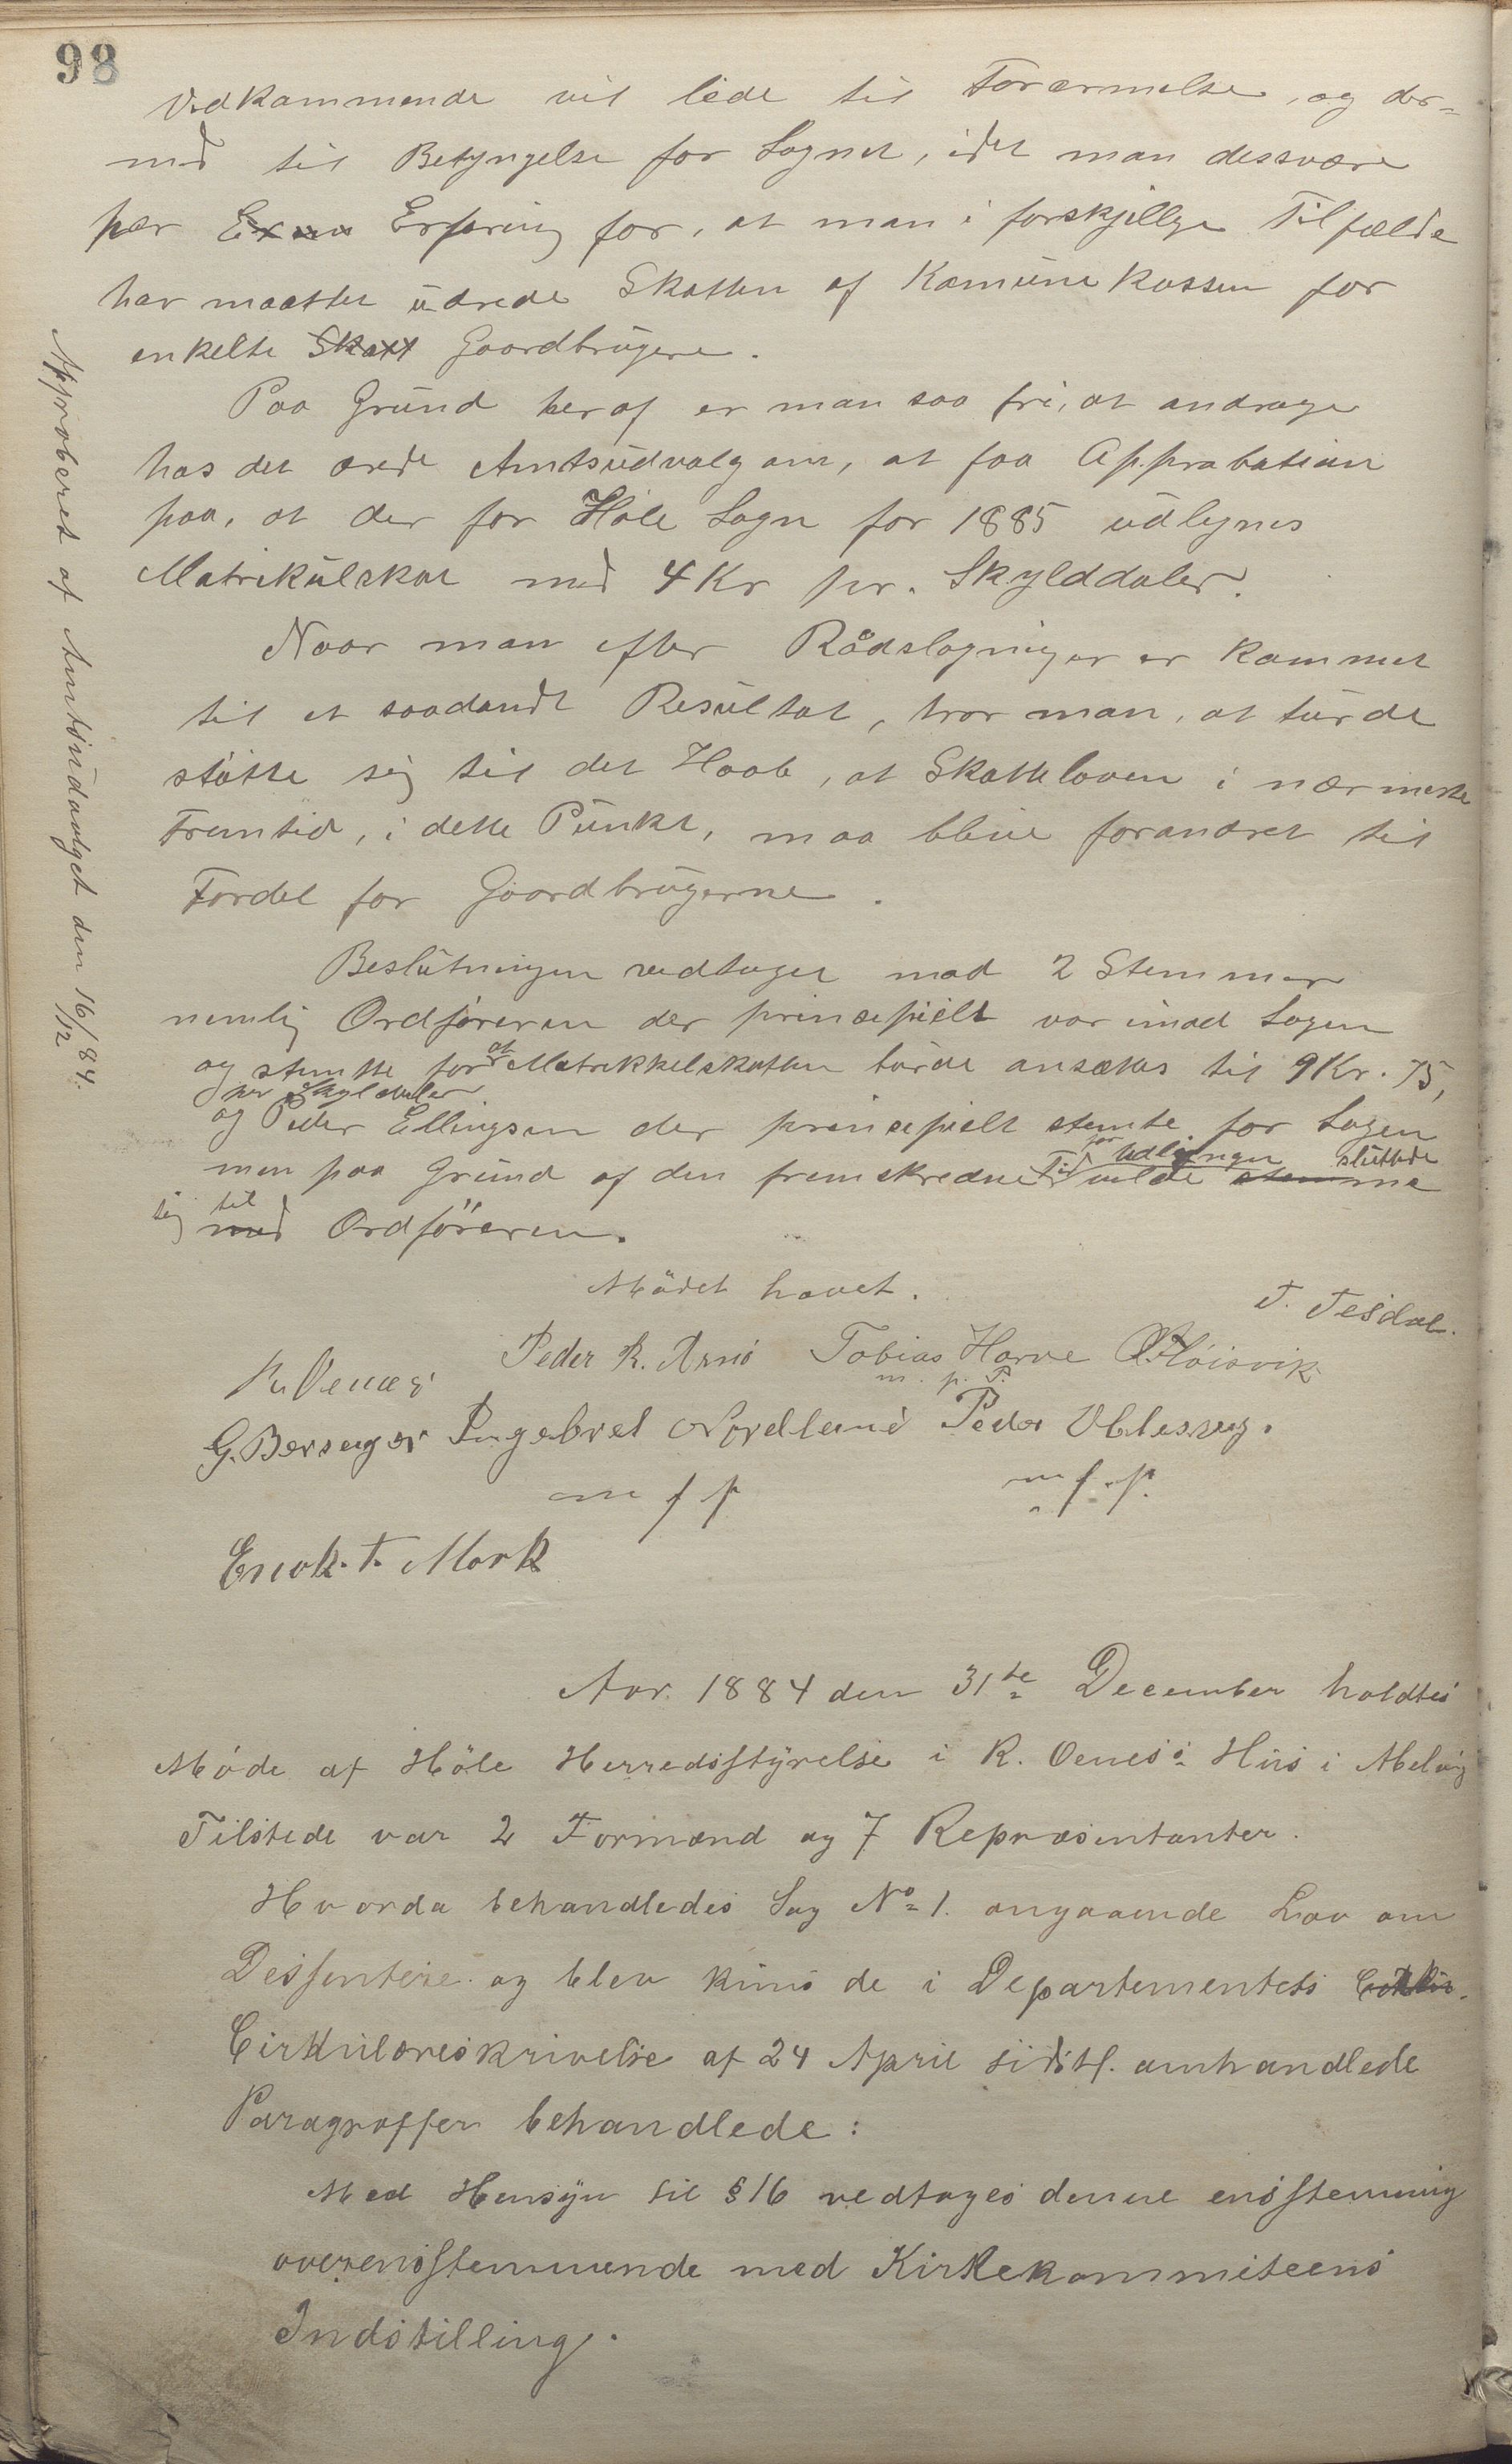 98
Vedkommende vil lede til Forarmelse, og der-
med til Betyngelse for Sognet, idet man dessvære
har Erfaring for, at man i forskjellige Tilfælde
har maattet udrede Skatten af Komunekassen for
enkelte Skatt Gaardbrugere.
Paa Grund heraf er man saa fri, at andrage
hos det ærede Amtsudvalg om, at faa Approbation
paa, at der for Höle Sogn for 1885 udlignes
Matrikulskat med 4 Kr pr. Skylddaler.
Naar man efter Rådslagninger er kommet
til et saadandt Resultat, tror man, at turde
støtte sig til det Haab, at Skatteloven i nærmeste
Fremtid, i dette Punkt, maa blive forandret til
Fordel for Gaardbrugerne.
Beslutningen vedtaget mod 2 Stemmer
nemlig Ordføreren der principielt var imod Sagen
og stemte for at Matrikkelskatten burde ansættes til 9 Kr. 75,
per Skylddaler
og Peder Ellingsen der principielt stemte for Sagen
for Udligningen sluttede
men paa Grund af den fremskredne Tid vilde stemme
sig til med Ordföreren.
Mödet hævet.
T. Tesdal.
R. Oenes Peder R. Arnö Tobias Harve O. Höisvik
m. f. P.
G. Berseyer Ingebret Nordland Peder Ellesen.
m f p m. f. p.
Enok. T. Mork
Approberet af Amtsudvalget den 16/12 84.
Aar 1884 den 31te December holdtes
Möde af Höle Herredsstyrelse i R. Oenes's Hus i Abelvig
Tilstede var 2 Formænd og 7 Repræsentanter.
Hvorda behandledes Sag No 1. angaaende Lov om
Dissentere og blev kuns de i Departementets
Cirkulæreskrivelse af 24 April sidstl. omhandlede
Paragraffer behandlede:
Med Hensyn til § 16 vedtages denne enstemmig
overensstemmende med Kirkekommiteens
Indstilling.